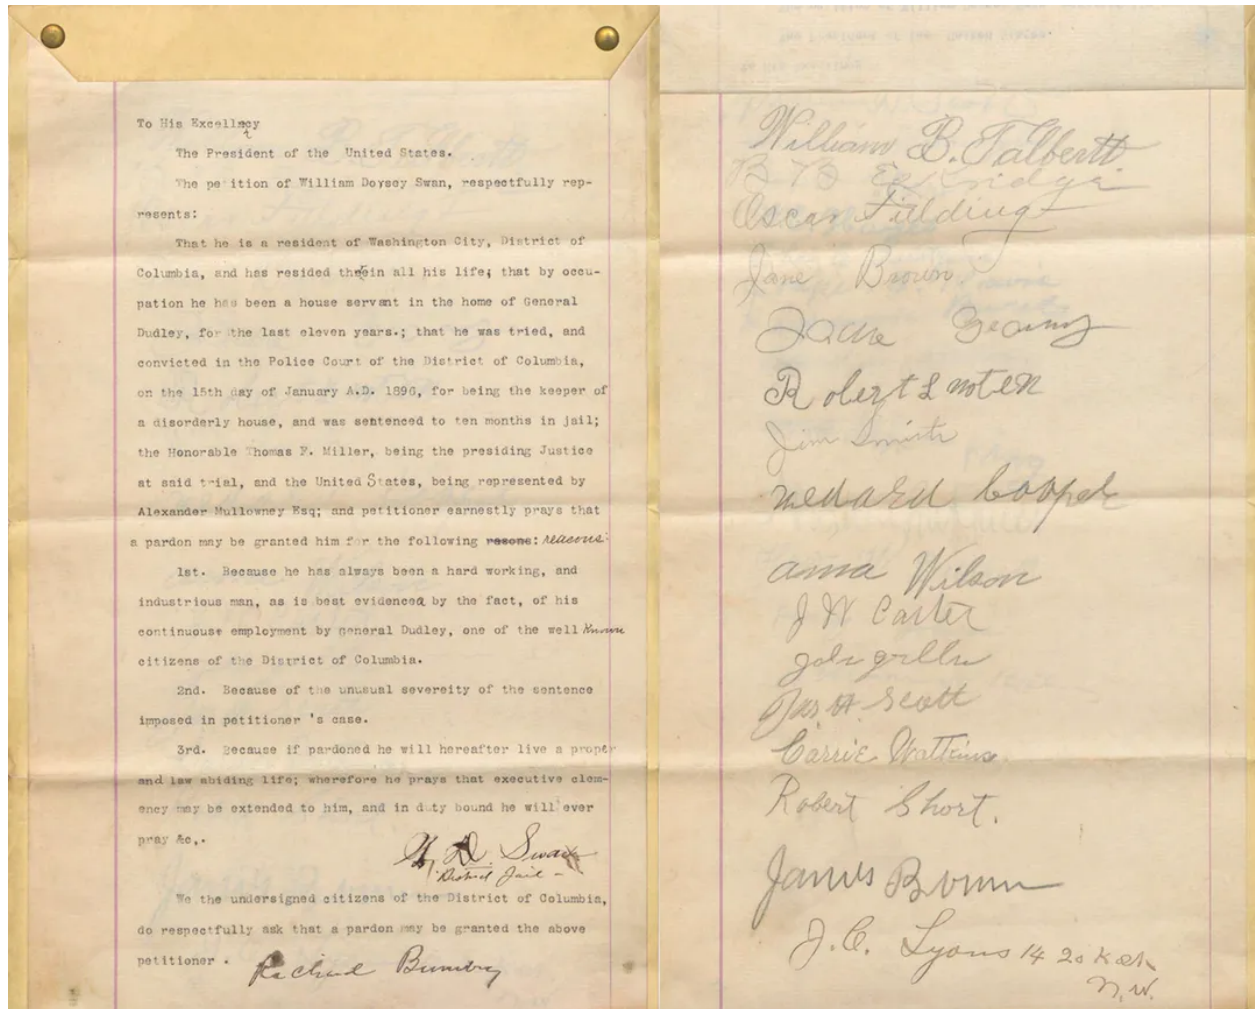 To His Excellncy
The President of the United States.
The petition of William Dorsey Swan, respectfully rep-
resents:
That he is a resident of Washington City, District of
Columbia, and has resided therein all his life; that by occu-
pation he has been a house servant in the home of General
Dudley, for the last eleven years.; that he was tried, and
convicted in the Police Court of the District of Columbia,
on the 15th day of January A.D. 1896, for being the keeper of
a disorderly house, and was sentenced to ten months in jail;
the Honorable Thomas F. Miller, being the presiding Justice
at said trial, and the United States, being represented by
Alexander Mullowney Esq; and petitioner earnestly prays that
a pardon may be granted him for the following resons: reasons:
1st. Because he has always been a hard working, and
industrious man, as is best evidenced by the fact, of his
continuouse employment by general Dudley, one of the well known
citizens of the District of Columbia.
2nd. Because of the unusual severeity of the sentence
imposed in petitioner 's case.
3rd. Because if pardoned he will hereafter live a proper
and law abiding life; wherefore he prays that executive clem-
ency may be extended to him, and in duty bound he will ever
pray &c,.
Wm D. Swan
District Jail -
We the undersigned citizens of the District of Columbia,
do respectfully ask that a pardon may be granted the above
petitioner .
William B. Talbertt
Oscar Fielding
Jane Brown.
Robert L noten
Jim Smith
medard Cooper
anna Wilson
J W Carter
Jas. H. Scott
Carrie Watkins
Robert Short.
James Brown
J. C. Lyons 14 20
N.W.